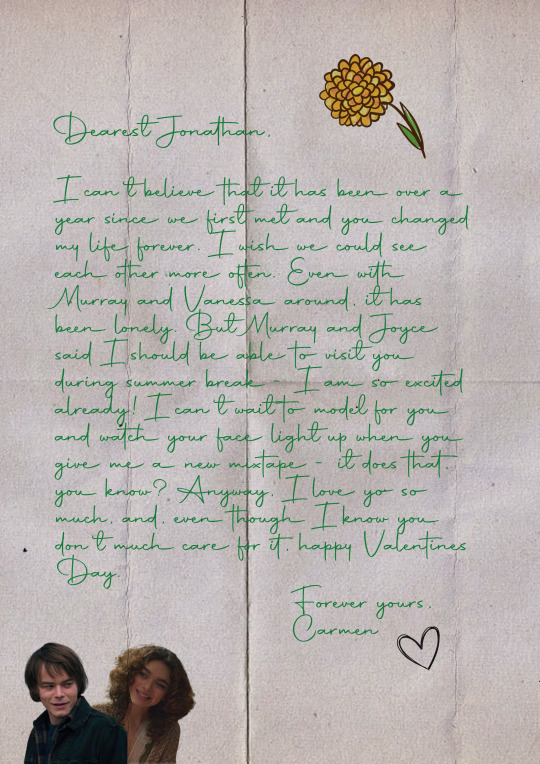 Dearest Jonathan,
I can't believe that it has been over a
year since we first met and you changed
my life forever. I wish we could see
each other more often. Even with
Murray and Vanessa around, it has
been lonely. But Murray and Joyce
said I should be able to visit you
during summer break - I am so excited
already! I can't wait to model for you
and watch your face light up when you
give me a new mixtape - it does that,
you know? Anyway, I love yo so
much, and, even though I know you
don't much care for it, happy Valentines
Day.
Forever yours,
Carmen